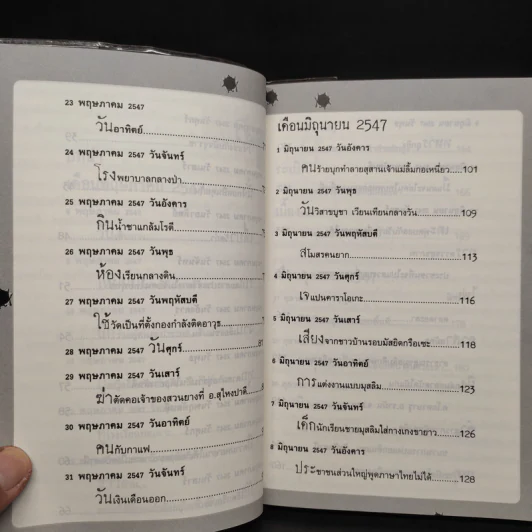 23 พฤษภาคม 2547
วันอาทิตย์
24 พฤษภาคม 2547 วันจันทร์
โรงพยาบาลกลางป่า
25 พฤษภาคม 2547 วันอังคาร
กินน้ำชาแกล้มโรตี
26 พฤษภาคม 2547 วันพุธ
ห้องเรียนกลางดิน
27 พฤษภาคม 2547 วันพฤหัสบดี
ใช้วัดเป็นที่ตั้งกองกำลังติดอาวุธ
28 พฤษภาคม 2547 วันศุกร์
29 พฤษภาคม 2547 วันเสาร์
ฆ่าตัดคอเจ้าของสวนยางที่ อ.สุไหงปาดี
30 พฤษภาคม 2547 วันอาทิตย์
คนกับกาแฟ
31 พฤษภาคม 2547 วันจันทร์
วันเงินเดือนออก
เดือนมิถุนายน 2547
1 มิถุนายน 2547 วันอังคาร
คนร้ายบุกทำลายสุสานเจ้าแม่ลิ้มกอเหนี่ยว 101
2 มิถุนายน 2547 วันพุธ
วันวิสาขบูชา เวียนเทียนกลางวัน 109
3 มิถุนายน 2547 วันพฤหัสบดี
สโมสรคนยาก 113
4 มิถุนายน 2547 วันศุกร์
เจแปนคาราโอเกะ 116
5 มิถุนายน 2547 วันเสาร์
เสียงจากชาวบ้านรอบมัสยิดกรือเซะ 118
6 มิถุนายน 2547 วันอาทิตย์
การแต่งงานแบบมุสลิม 123
7 มิถุนายน 2547 วันจันทร์
เด็กนักเรียนชายมุสลิมใส่กางเกงขายาว 126
8 มิถุนายน 2547 วันอังคาร
ประชาชนส่วนใหญ่พูดภาษาไทยไม่ได้ 128